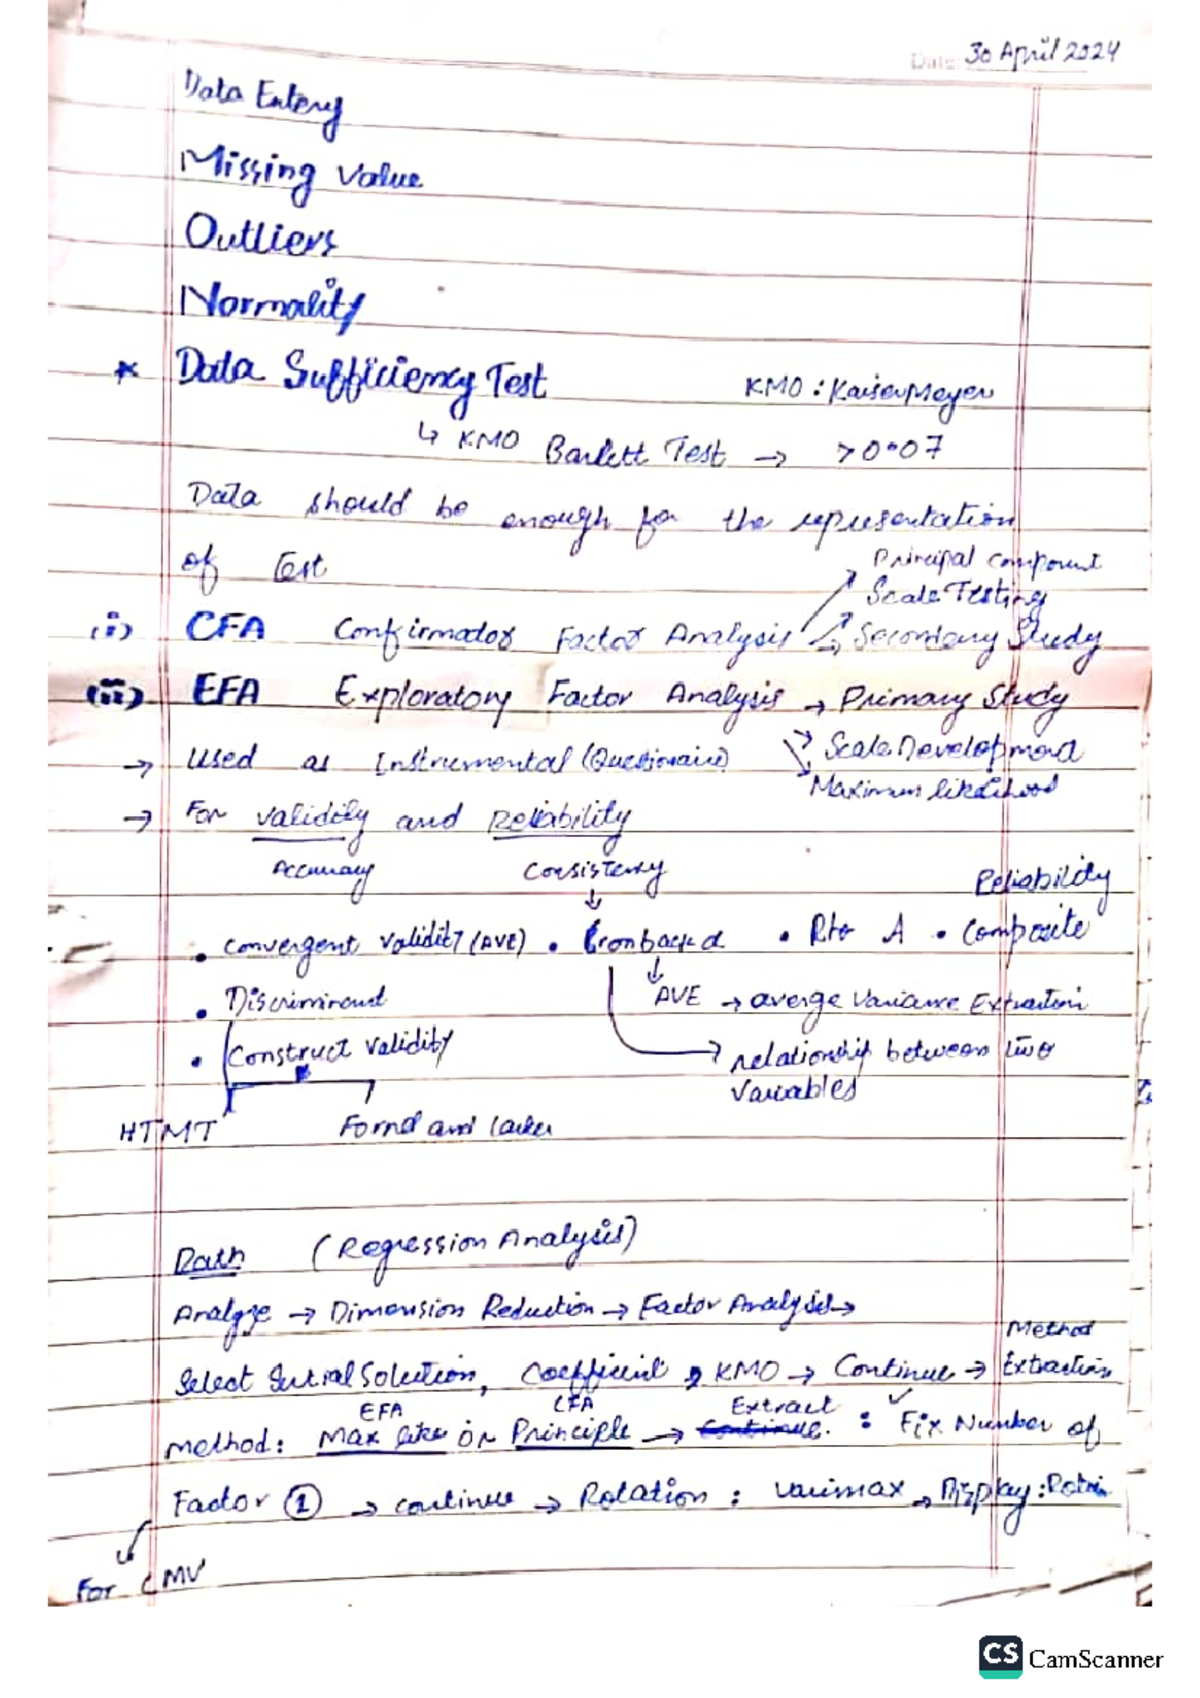 Date: 30 April 2024
Data Entery
Missing Value
Outliers
Normality
* Data Sufficiency Test KMO : Kaiser Meyer
↳ KMO Barlett Test → > 0.07
Data should be enough for the representation
of Test
Principal component
Scale Testing
(i) CFA Confirmator Factor Analysis → Secondary Study
(ii) EFA Exploratory Factor Analysis → Primary Study
→ Used as Instrumental (Questionaire) Scale Development
Maximum likelihood
→ For validity and Reliability
Accuracy Consistency Reliability
• Convergent validity (AVE) • Cronback d • Rho A • Composite
• Discriminant AVE → averge Variance Extraction
• Construct validity → relationship between two
Variables
HTMT Fornel and larker
Path (Regression Analysis)
Analyze → Dimension Reduction → Factor Analysis →
Method
Select Initial Solution, Coefficient, KMO → Continue → Extraction
EFA CFA Extract
method: Max like or Principle → Continue. : Fix Number of
Factor ① → continue → Rotation : varimax → Display :
For CMV
CS CamScanner